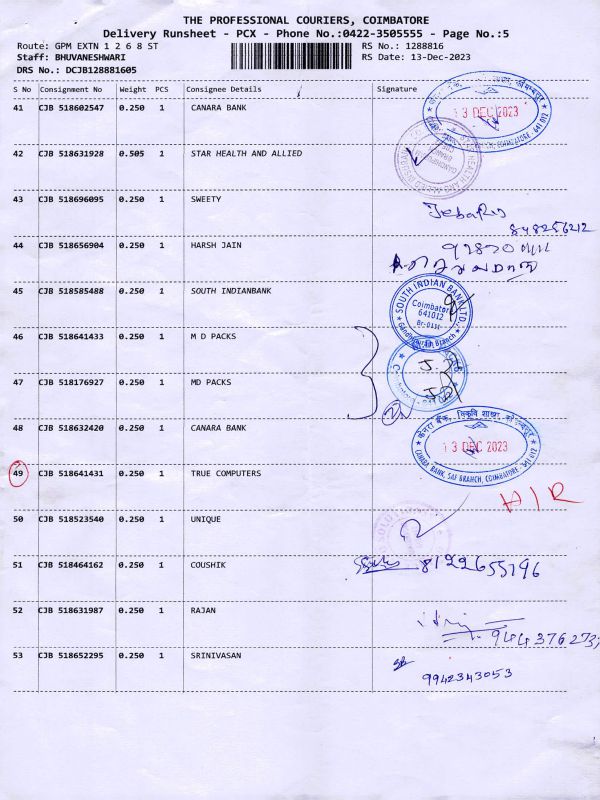 THE PROFESSIONAL COURIERS, COIMBATORE
Delivery Runsheet - PCX - Phone No.:0422-3505555 - Page No.:5
Route: GPM EXTN 1 2 6 8 ST
RS No.: 1288816
Staff: BHUVANESHWARI
RS Date: 13-Dec-2023
DRS No.: DCJB128881605
S No Consignment No Weight PCS Consignee Details Signature
41 CJB 518602547 0.250 1 CANARA BANK
13 DEC 2023
COIMBATORE- 641 012
42 CJB 518631928 0.505 1 STAR HEALTH AND ALLIED
43 CJB 518696095 0.250 1 SWEETY
848256212
44 CJB 518656904 0.250 1 HARSH JAIN
45 CJB 518585488 0.250 1 SOUTH INDIANBANK
SOUTH INDIAN BANK LTD.
Coimbatore
641012
46 CJB 518641433 0.250 1 M D PACKS
47 CJB 518176927 0.250 1 MD PACKS
48 CJB 518632420 0.250 1 CANARA BANK
केनरा बैंक,
13 DEC 2023
CANARA BANK, SAF BRANCH, COIMBATORE - 641 012
49 CJB 518641431 0.250 1 TRUE COMPUTERS
50 CJB 518523540 0.250 1 UNIQUE
51 CJB 518464162 0.250 1 COUSHIK
8122655796
52 CJB 518631987 0.250 1 RAJAN
53 CJB 518652295 0.250 1 SRINIVASAN
9942343053